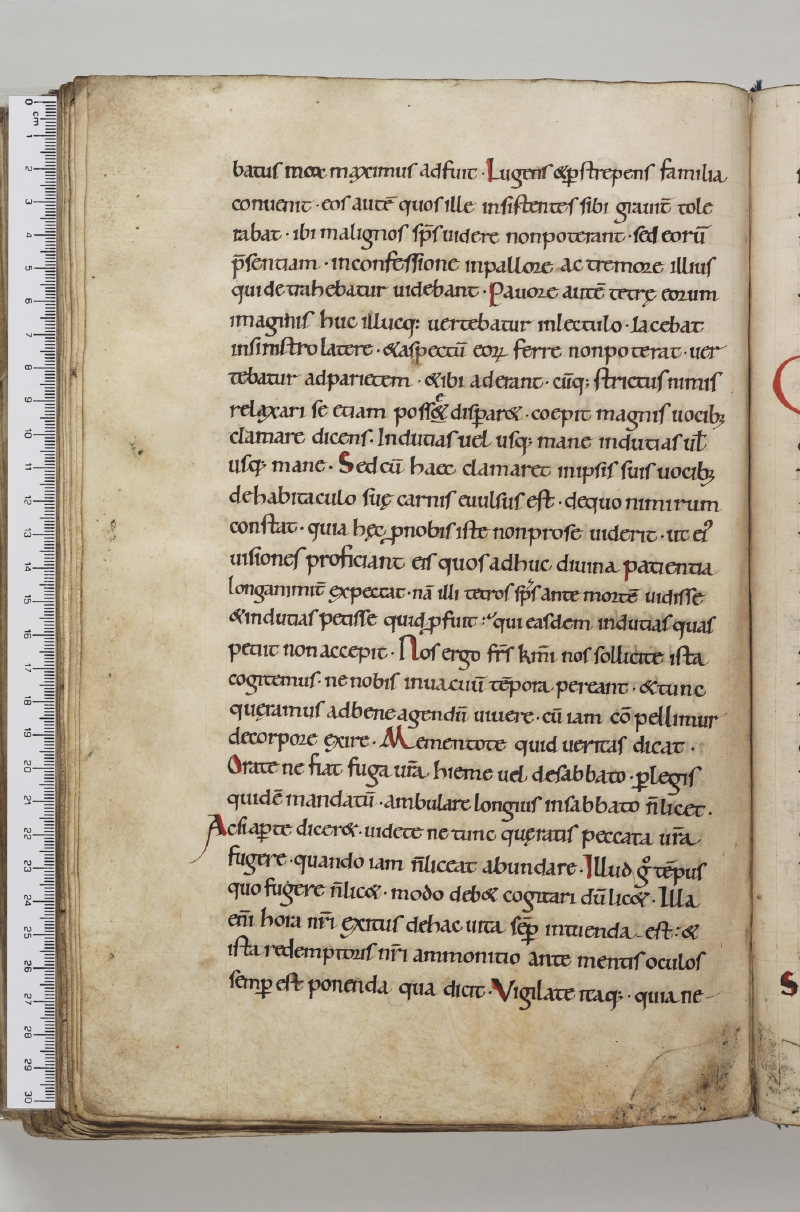 batus mox maximus adfuit · Lugens &p̄strepens familia
conuenit · eos autē quos ille insistentes sibi grauit̄ tole
rabat · ibi malignos sp̄s uidere nonpoterant · sed eorū
p̄sentiam · inconfessione inpallore ac tremore illius
qui detrahebatur uidebant · Pauore autē tetrę eorum
imaginis huc illucq; uertebatur inlectulo · Iacebat
insinistro latere · &aspectū eoꝝ ferre nonpoterat · uer
tebatur adparietem · &ibi aderant · cūq; strictus nimis
relaxari se etiam poss& dispar& · coepit magnis uocib;
clamare dicens · Indutias uel usq; mane indutias ut
usq; mane · Sedcū haec clamaret inipsis suis uocib;
dehabitaculo suę carnis euulsus est · dequo nimirum
constat · quia hęc ꝓnobis iste nonprose uiderit · ut ei᾿
uisiones proficiant eis quos adhuc diuina patientia
longanimit̄ expectat · nā illi tetros sp̄s ante mortē uidisse
&indutias petisse quid ꝓfuit · qui easdem indutias quas
petiit non accepit · Nos ergo fr̄s km̄i nos sollicite ista
cogitemus · ne nobis inuacuū tēpora pereant · &tunc
quęramus adbene agendū uiuere · cū iam cōpellimur
decorpore exire · Mementote quid ueritas dicat ·
Orate ne fiat fuga ur̄a hieme uel desabbato · ꝑlegis
quidē mandatū · ambulare longius insabbato n̄licet ·
Acsi aꝑte dicer& · uidete ne tunc quęratis peccata ur̄a
fugere · quando iam n̄liceat abundare · Illud g̊ tēpus
quo fugere n̄lic& · modo deb& cogitari dū lic& · Illa
eni hora nr̄i exitus dehac uita semꝑ intuenda est : &
ista redemptoris nr̄i ammonitio ante mentis oculos
semꝑ est ponenda qua dicit · Vigilate itaq; · quia ne